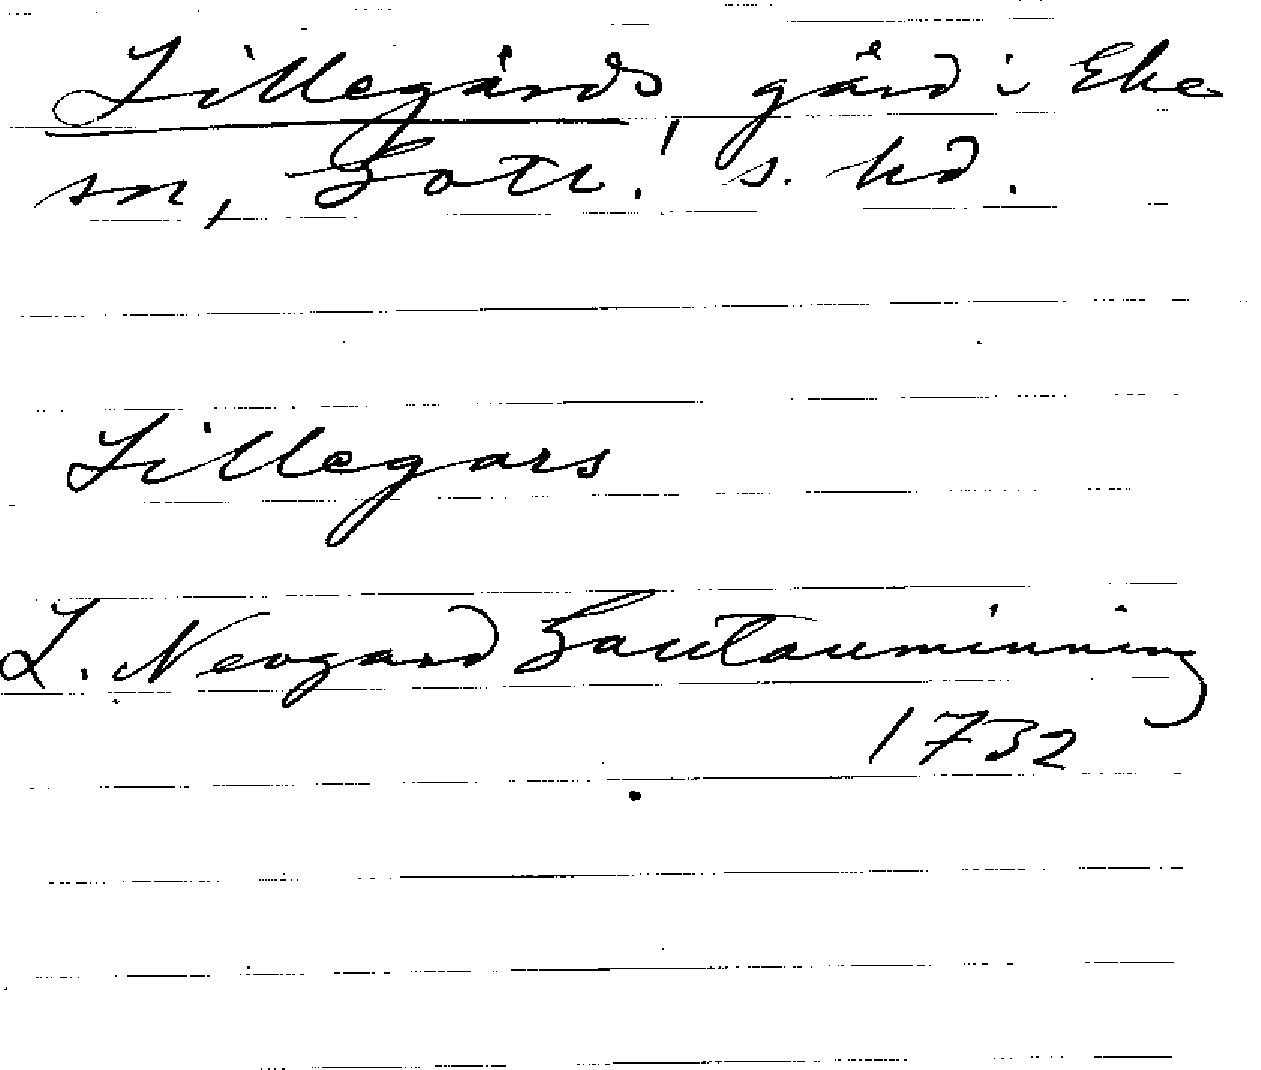 Lillegårds, gård i Eke
sn, Gotl. s. hd.
Lillegars
L. Neogard Gautauminning
1732